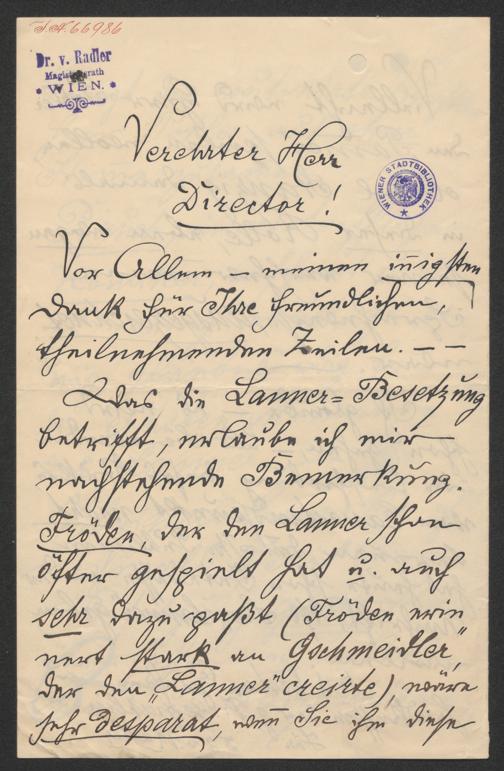 I.N. 66986
Dr. v. Radler
Magistratsrath
WIEN.
WIENER STADTBIBLIOTHEK
Verehrter Herr
Director!
Vor Allem – meinen innigsten
Dank für Ihre freundlichen,
theilnehmenden Zeilen. – –
Was die Lanner=Besetzung
betrifft, erlaube ich mir
nachstehende Bemerkung.
Fröden, der den Lanner schon
öfter gespielt hat u. auch
sehr dazu paßt (Fröden erin
nert stark an Gschmeidler,
der den „Lanner" creirte), wäre
sehr desparat, wenn Sie ihm diese